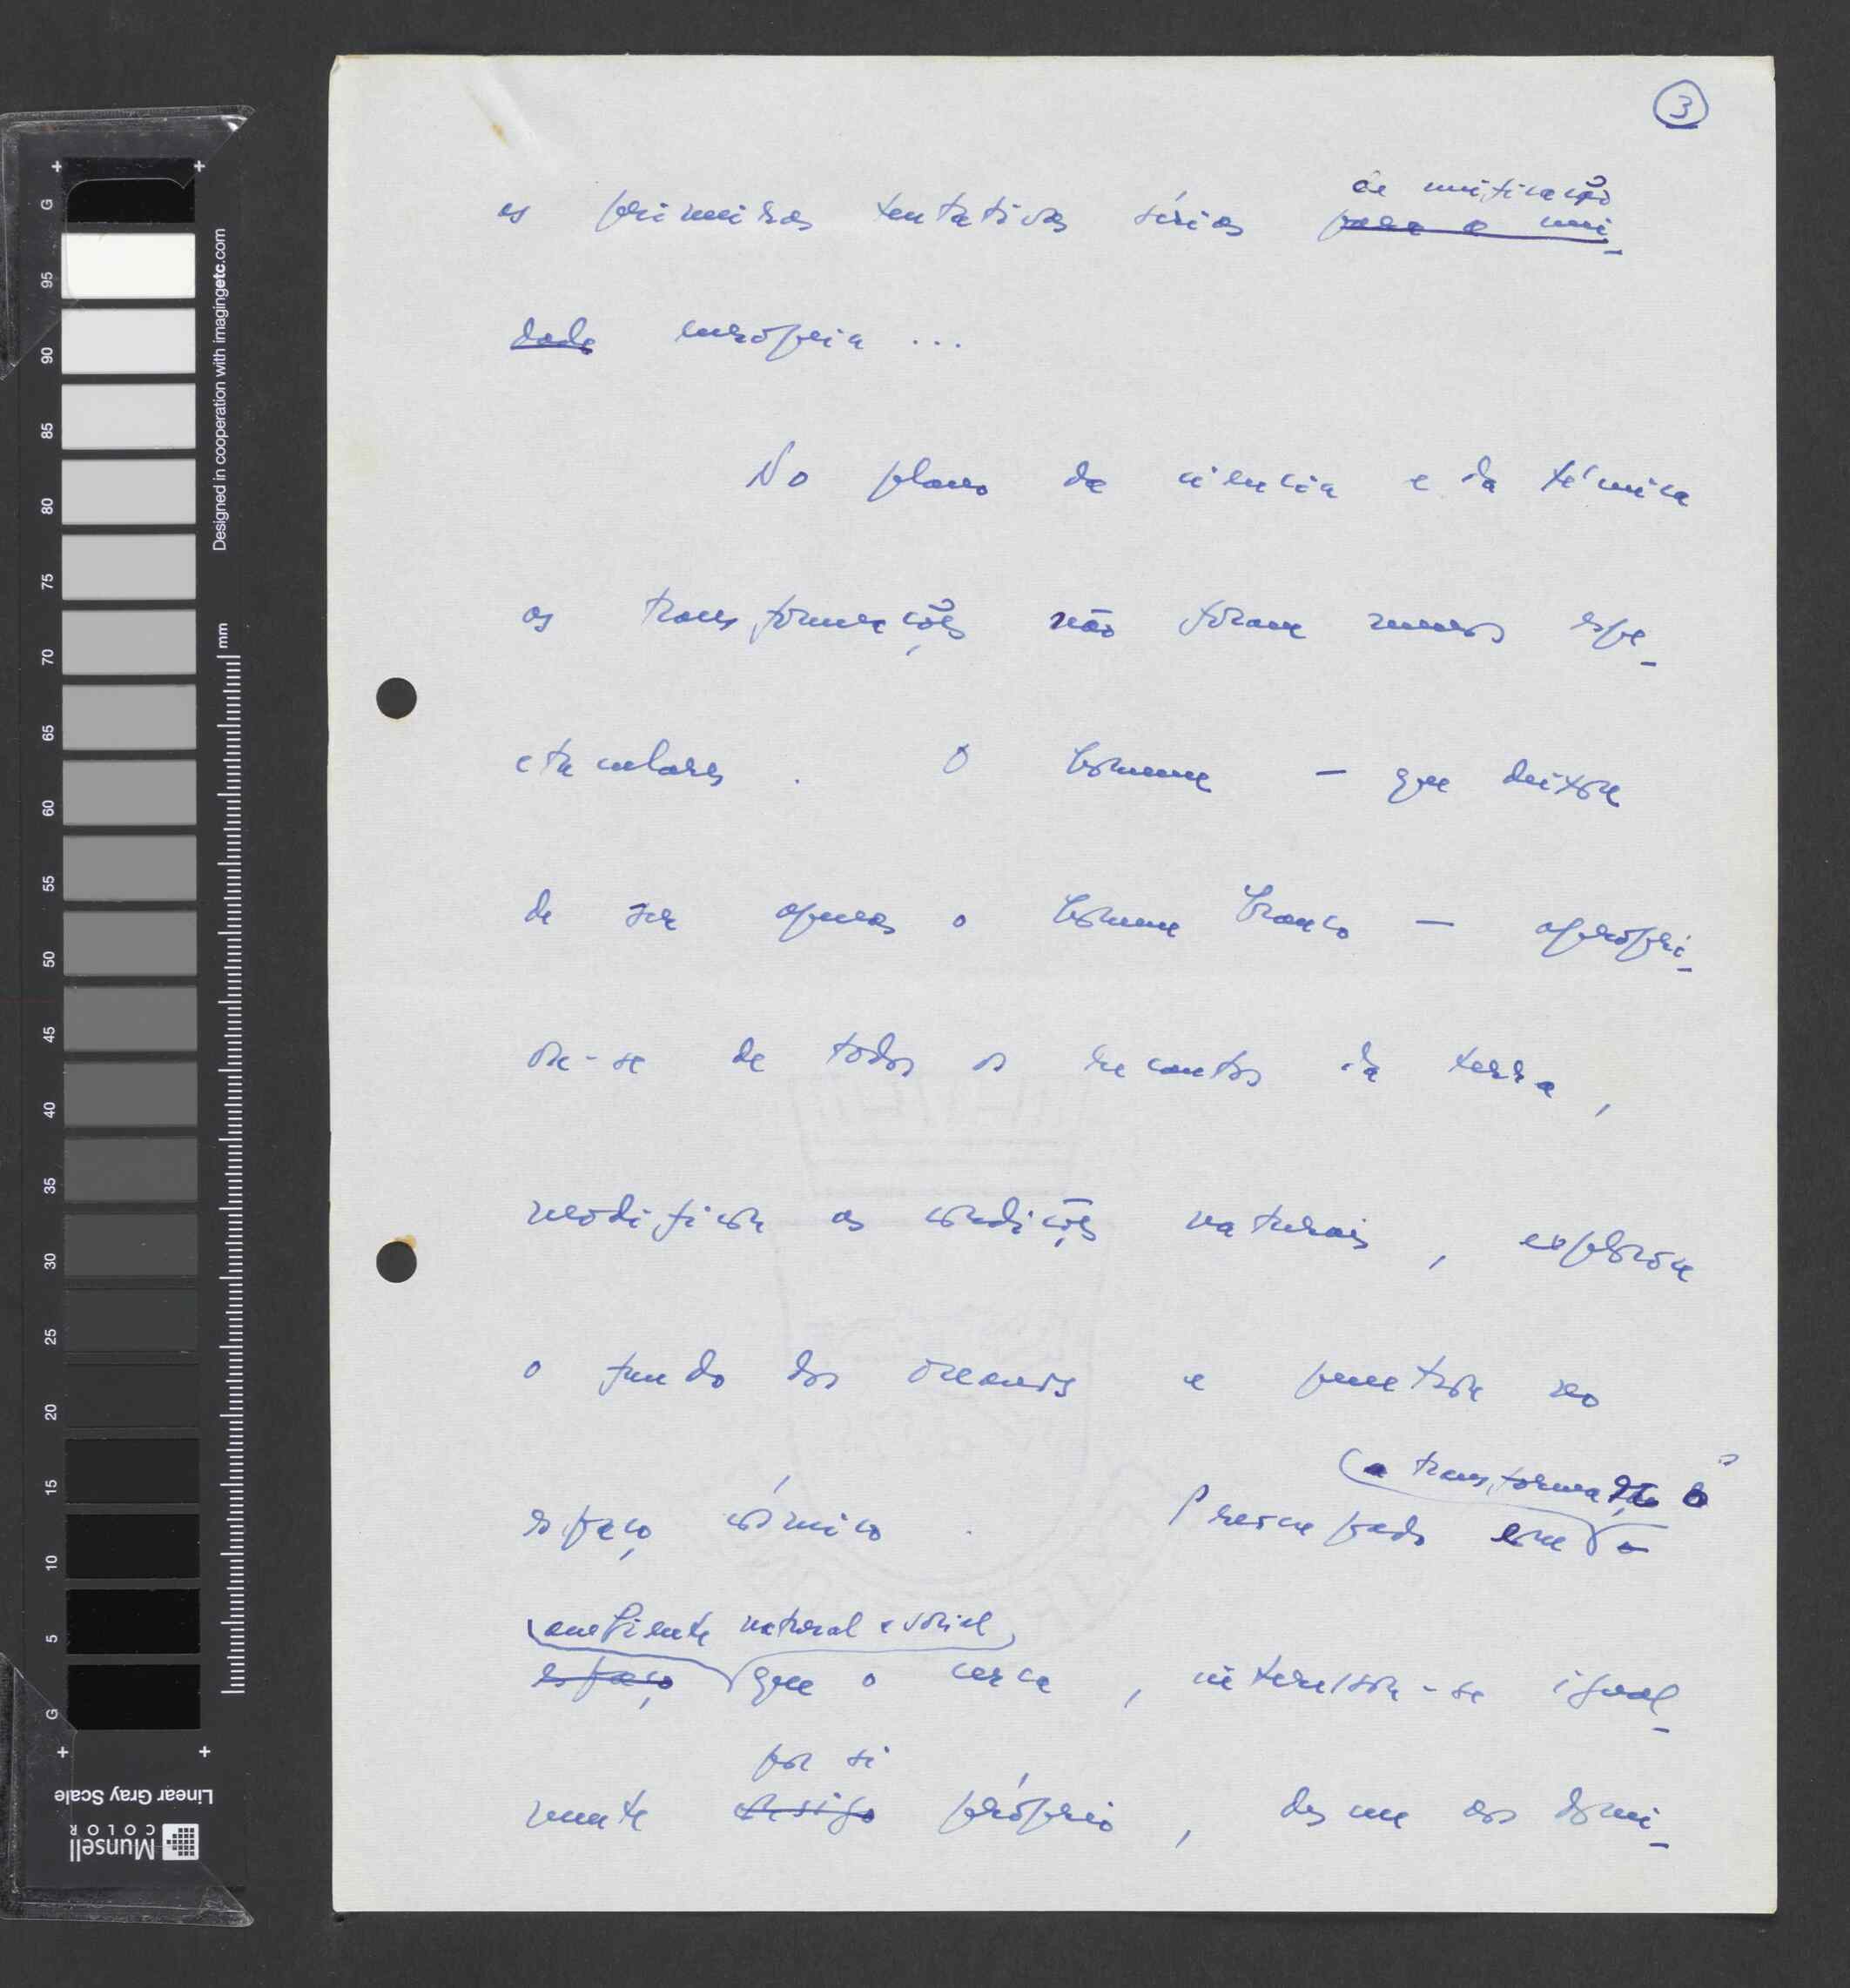 3
de unificação
as primeiras tentativas sérias para a uni-
dade européia ...
No plano da ciencia e da técnica
as transformações não foram menos espe-
ctaculares . O homem — que deixou
de ser apenas o homem branco — apropri-
ou-se de todos os recantos da terra ,
modificou as condições naturais , explorou
o fundo dos oceanos e penetrou no
(a transformação do
espaço cósmico . Preocupado com o
ambiente natural e social
espaço que o cerca , interessou-se igual-
por si
mente consigo próprio ,
G
95
90
85
80
75
70
65
60
55
50
45
40
35
30
25
20
15
10
5
G
Designed in cooperation with imagingetc.com
mm
Linear Gray Scale
Munsell
COLOR